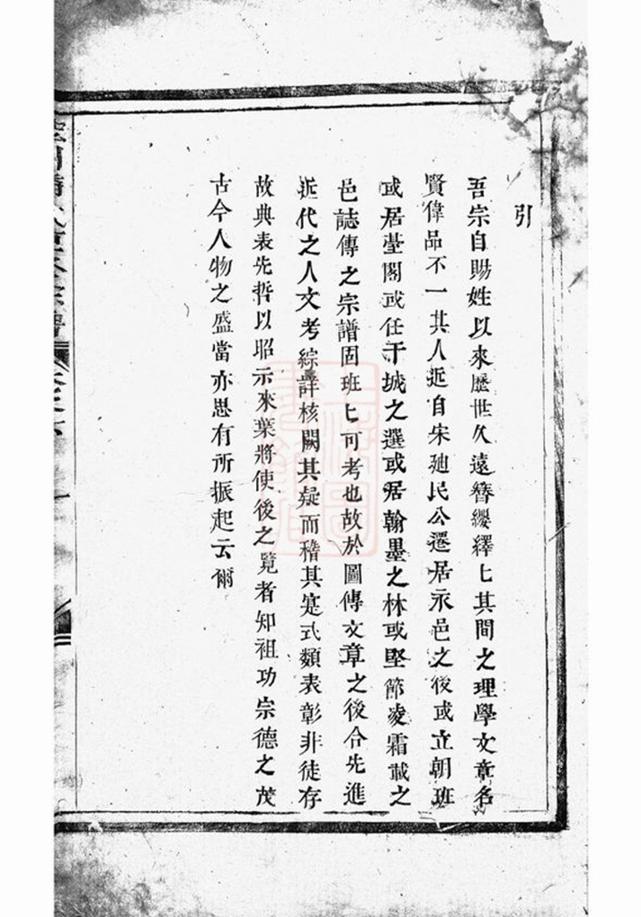 引
吾宗自賜姓以來歷世久遠簪纓繹匕其間之理學文章名
賢偉品不一其人近自宋廸民公遷居永邑之後或立朝班
或居臺閣或任干城之選或居翰墨之林或堅節凌霜載之
邑誌傳之宗譜固班匕可考也故於圖傳文章之後合先進
近代之人文考綜詳核闕其疑而稽其寔式類表彰非徒存
故典表先哲以昭示來葉將使後之覽者知祖功宗德之茂
古今人物之盛當亦思有所振起云爾